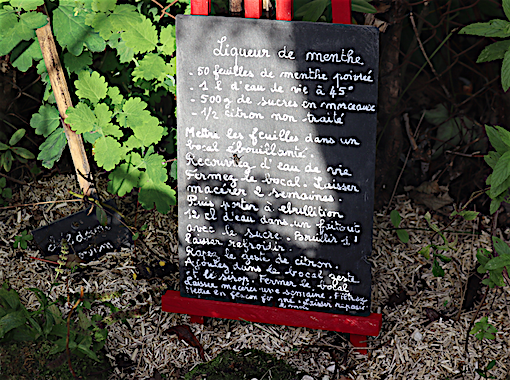 Liqueur de menthe
- 50 feuilles de menthe poivrée
- 1 l d'eau de vie à 45°
- 500g de sucres en morceaux
- 1/2 citron non traité
Mettre les feuilles dans un
bocal ébouillanté.
Recouvrez d'eau de vie
Fermez le bocal. Laisser
macérer 2 semaines.
Puis porter à ébullition
12 cl d'eau dans un faitout
avec le sucre. Bouillir 1'
laisser refroidir
Rapez le zeste de citron.
Ajoutez dans le bocal zeste
et le sirop. Fermer le bocal
Laisser macérer une semaine. Filtrez
Mettre en flacon. Laisser reposer